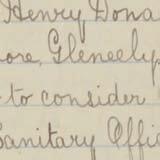 Henry Dona
ore, Gleneely
to consider
Sanitary Offi